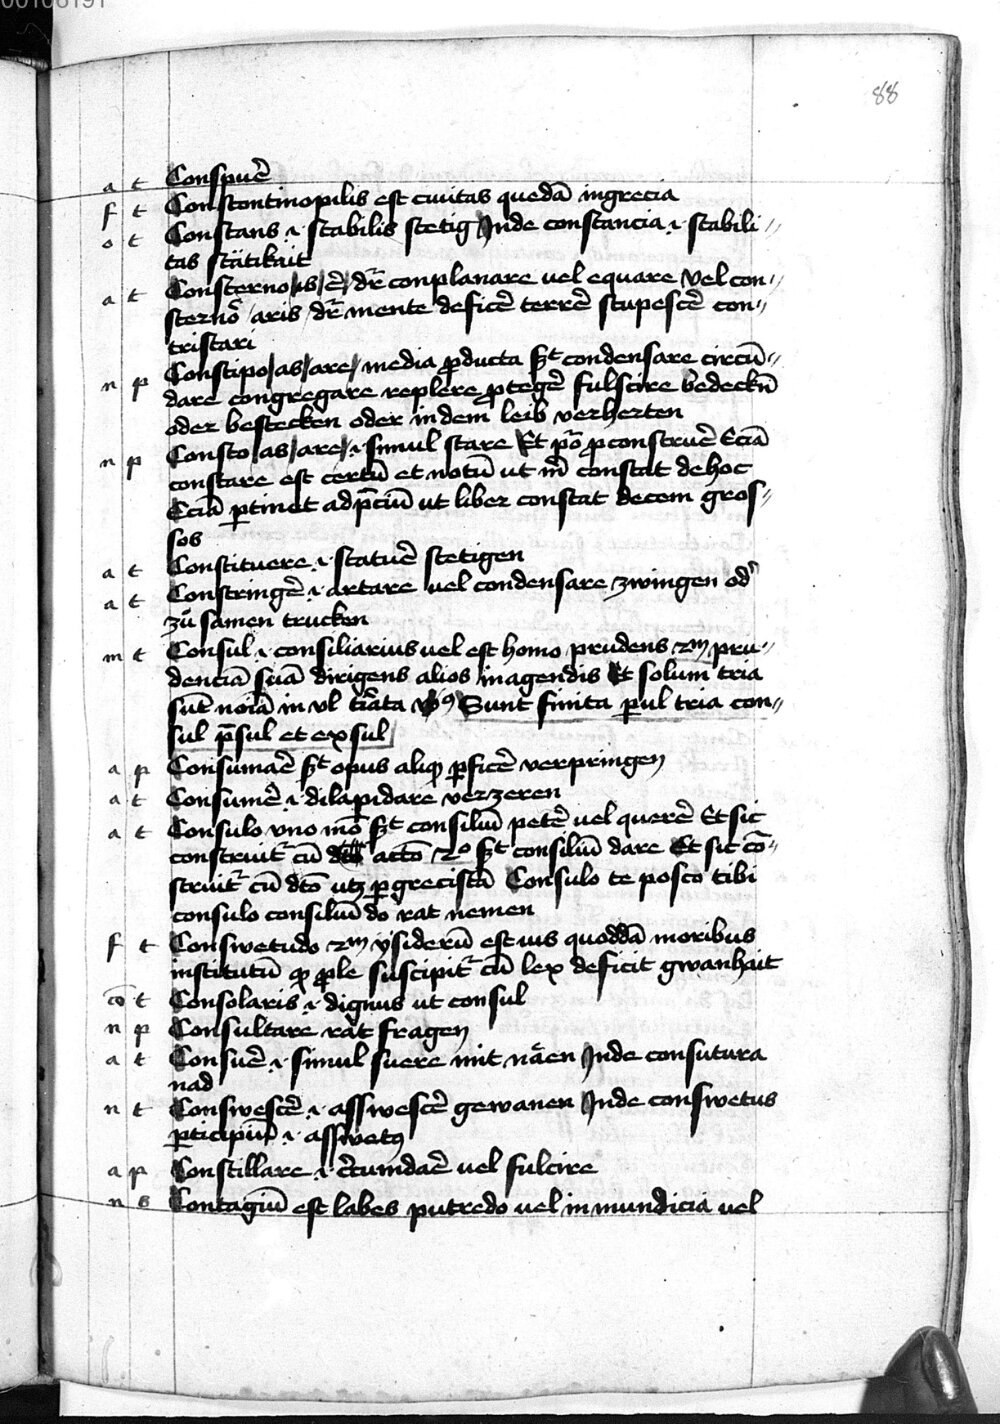 00106191
88
a t Conspuē
f t Constantinopilis est ciuitas quedā ingrecia
o t Constans .i. stabilis stetig Inde constancia .i. stabili〃
tas stätikait
a t Consterno is ē dr̄ conplanare uel equare Vel con〃
sternō aris dr̄ mente deficē terrē stupescē con〃
tristari
n p Constipo as are media ꝓducta s̄t condensare circū〃
dare congregare replere ꝓtegē fulscire bedeckn̄
oder bestecken oder in dem leib verherten
n p Consto as are .i. simul stare Et pō ꝓ construē Eciā
constare est certū et notū ut m̄ constat de hoc
Eciā ꝑtinet ad p̄ciū ut liber constat decem gros〃
sos
a t Constituere .i. statuē stetigen
a t Constringē .i. artare uel condensare zwingen od'
zū samen trucken
m t Consul .i. consiliarius uel est homo prudens 2m pru〃
denciā suā dirigens alios in agendis Et solum tria
sūt noīa in ul tr̄ata Sunt finita ꝑ ul tria con〃
sul p̄sul et exsul
a p Consumaē s̄t opus aliqͦ ꝑficē verpringen
a t Consumē .i. dilapidare verzeren
a t Consulo vno mō s̄t consiliū petē uel querē Et sic
construit̄ cū actō 2o s̄t consiliū dare Et sic cō〃
struit̄ cū dtō utꝫ ꝑ grecistā Consulo te posco tibi
consulo consiliū do rat nemen
f t Conswetudo 2m ysiderū est ius quoddā moribus
institutū qͦ ꝓ le suscipit̄ cū lex deficit gwanhait
cō t Consolaris .i. dignus ut consul
n p Consultare rāt fragen
a t Consuē .i. simul suere mit näen Inde consutura
nad
n t Conswescē .i. asswescē gewanen Inde conswetus
ꝑticipiū .i. asswetꝯ
a p Constillare .i. c̄cumdaē uel fulcire
n s Contagiū est labes putredo uel inmundicia uel